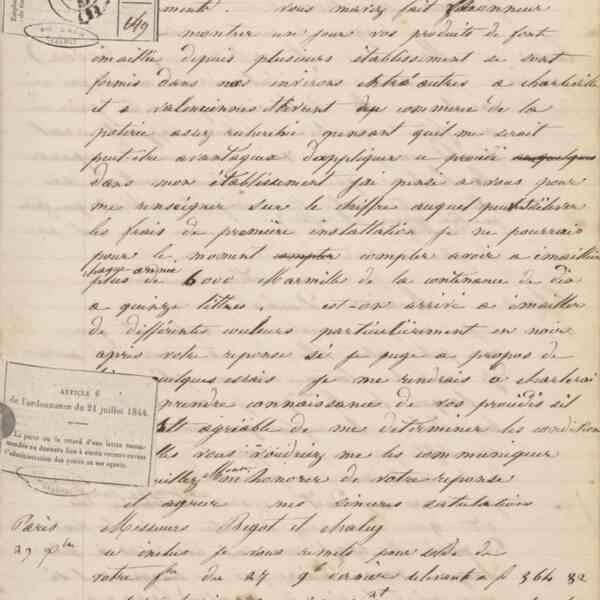 mente. Vous m'avez fait l'honneur
montrer un jour vos produits de font
imaillée depuis plusieurs établissement se sont
formés dans nos environs entre autres a charleville
et a valenciennes livrent au commerce de la
poterie assez recherchée pensant qu'il me serait
peut-être avantageux d'appliquer ce procédé
dans mon établissement j'ai pensé a vous pour
me renseigner sur le chiffre auquel peut s'élever
les frais de première installation je ne pourrais
pour le moment compter compter avoir a imailler
chaque année
plus de 6000 Marmittes de la contenance de dix
a quinze littres. est-on arrivé a imailler
de différentes couleurs particulièrement en noir
apres votre reponse si je juge a propos de
quelques essais je me rendrais a charleroi
prendre connaissance de vos procédés s'il
agréable de me determiner les conditions
vous voudriez me les communiquer
Messieurs
m'honorer de votre reponse
et agréer mes sincures salutations
Paris
Messieurs Bigot et
29 9bre
ci inclus je vous remets pour solde de
votre fre du 27 9bre dernier s'elevant a f 364 82
149
ARTICLE 6
de l'ordonnance du 21 juillet 1844.
La perte ou le retard d'une lettre recom-
mandée ne donnera lieu à aucun recours envers
l'administration des postes ou ses agents.